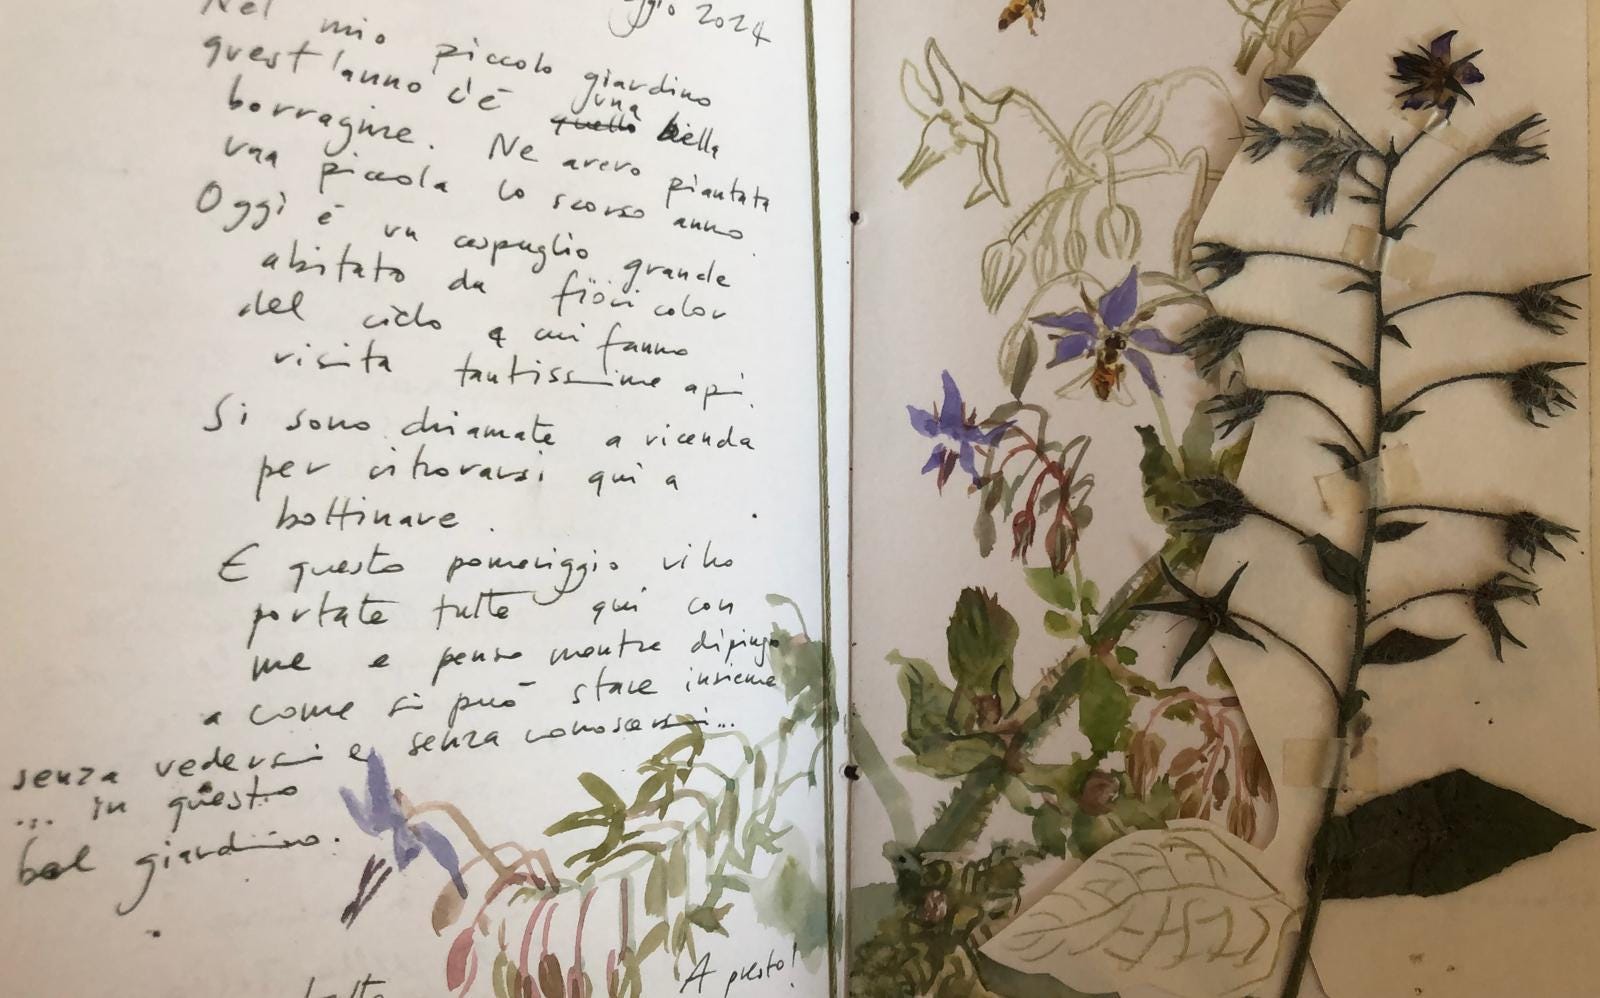 ggio 2024
Nel mio piccolo giardino
quest'anno c'è una bella
borragine. Ne avevo piantata
una piccola lo scorso anno.
Oggi è un cespuglio grande
abitato da fiori color
del cielo a cui fanno
visita tantissime api.
Si sono chiamate a vicenda
per ritrovarsi qui a
bottinare.
E questo pomeriggio vi ho
portate tutte qui con
me e penso mentre dipingo
a come si può stare insieme
senza vedersi e senza conoscersi...
... in questo
bel giardino.
A presto!